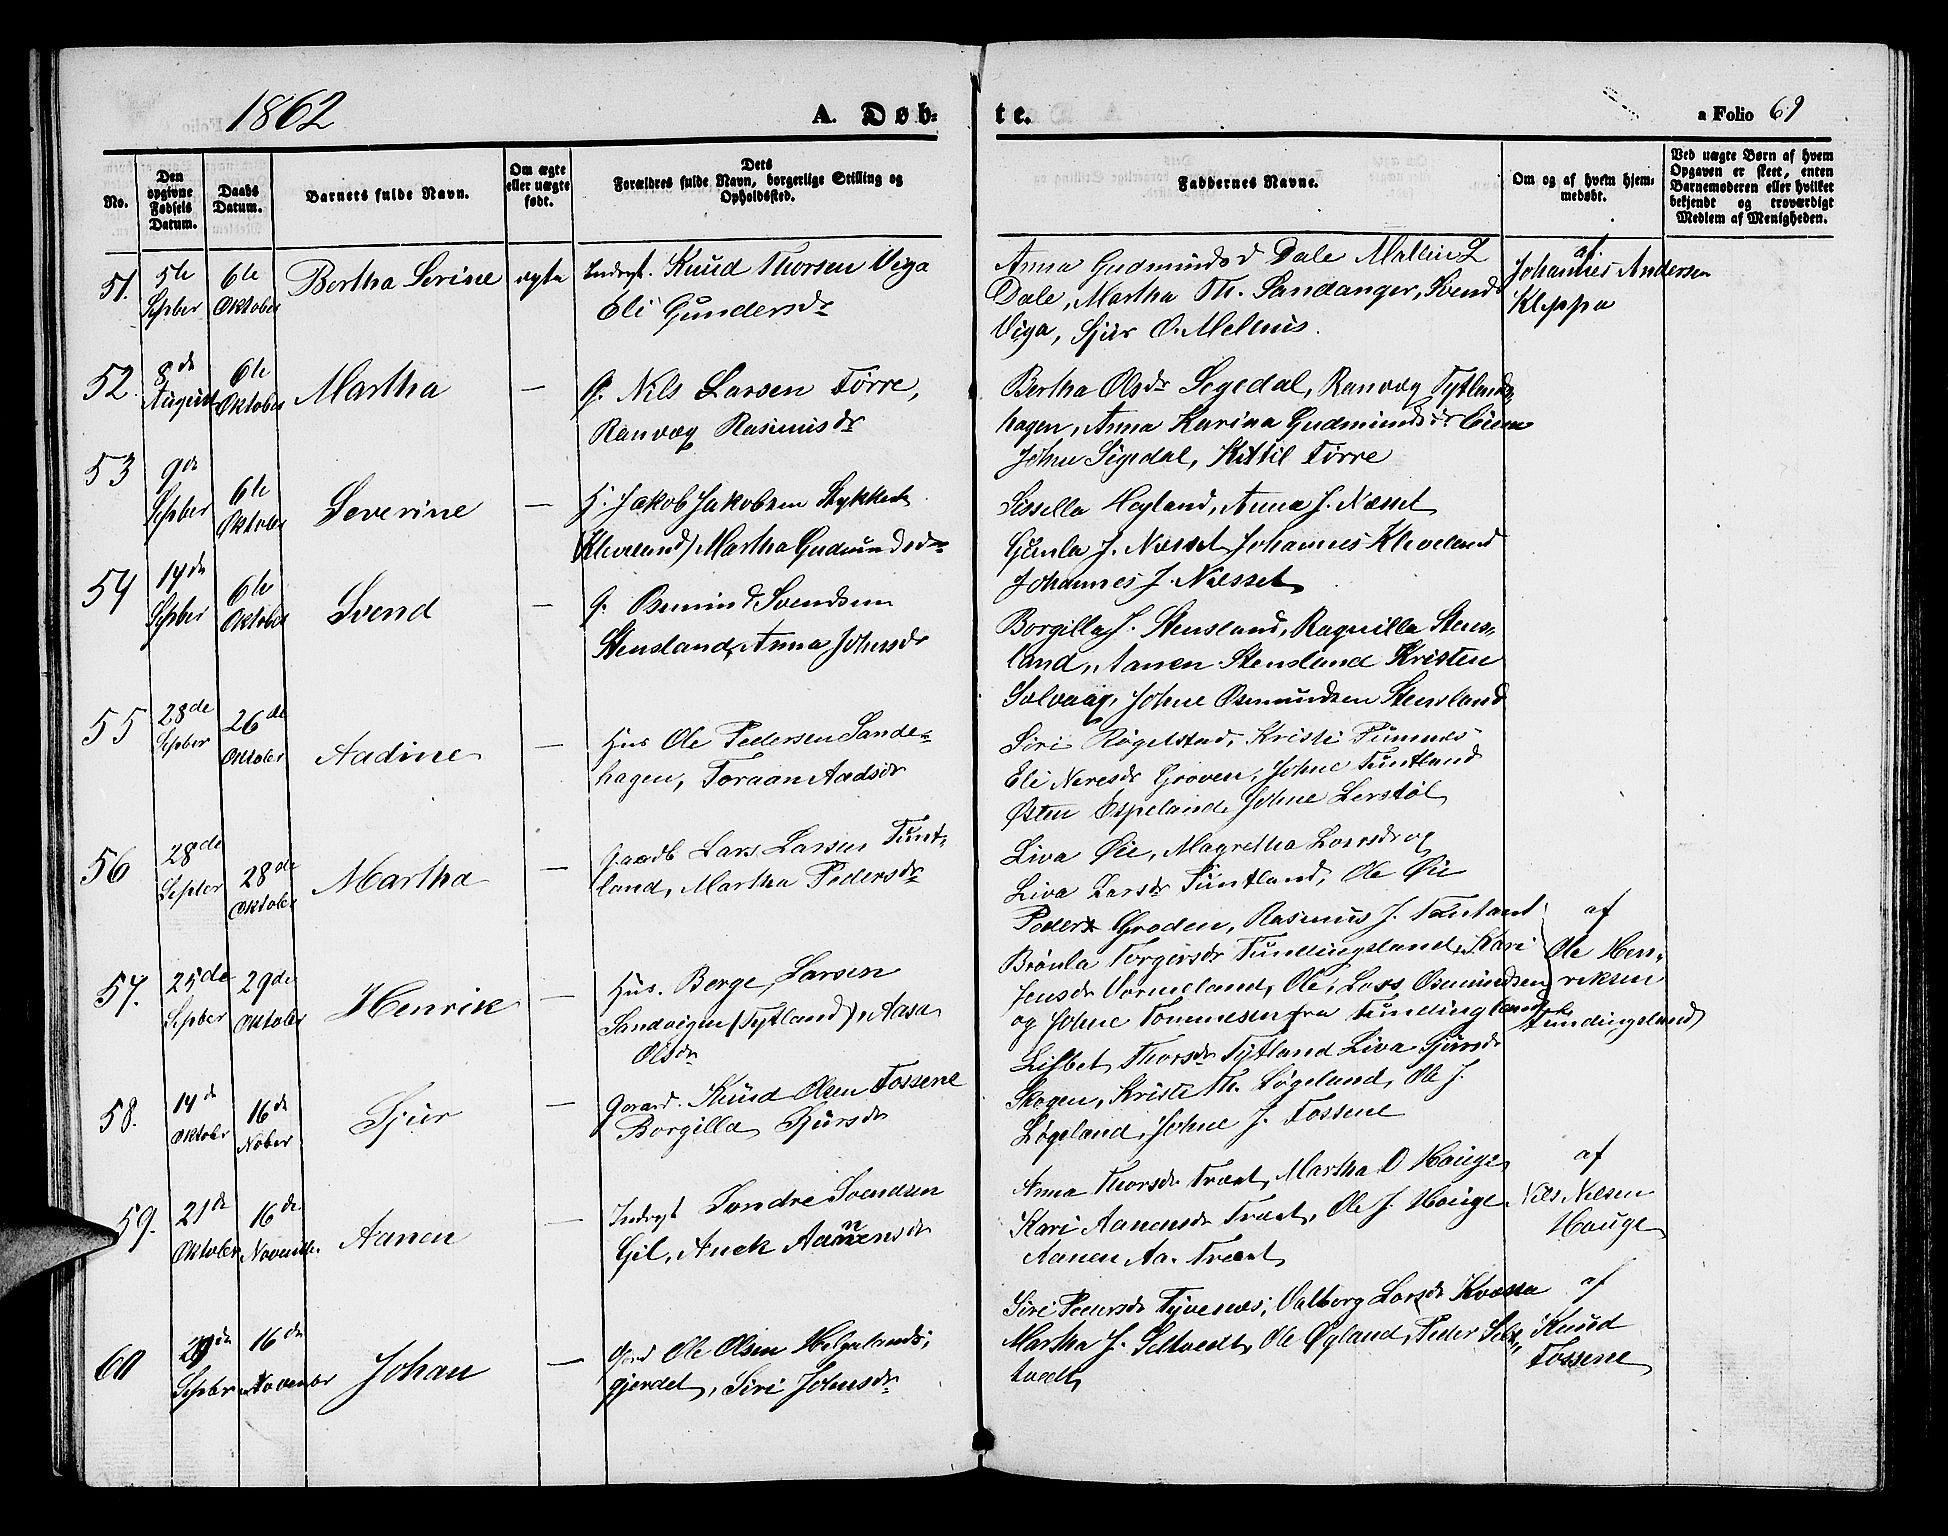 1862
A. Døb-
te.
a Folio 69
No.
Den opgivne Fødsels Datum.
Daabs Datum.
Barnets fulde Navn.
Om ægte eller uægte født.
Dets Forældres fulde Navn, borgerlige Stilling og Opholdssted.
Faddernes Navne.
Om og af hvem hjemmedøbt.
Ved uægte Børn af hvem Opgaven er skeet, enten Barnemoderen eller hvilket bekjendt og troværdigt Medlem af Menigheden.
51. 5te Septber 6te Oktober Bertha Serine ægte Indrst. Knud Thorsen Viga
Eli Gundersdr
Anna Gudmundsd Dale Mallin L
Dale, Martha Th. Sandanger, Svend
Viga, Sjur O. Melhus.
af
Johannes Andersen
Kleppa
52. 8de August 6te Oktober Martha — G. Nils Larsen Førre,
Ranvæg Rasmusdr
Bertha Olsdr Segedal, Ranvæg Tytlands
hagen, Anna Karina Gudmundsdr
Johne Sigedal, Kittil Førre
53 9de Septber 6te Oktober Severine — H. Jakob Jakobsen
Kleveland) Martha Gudmundsdr
Sissella Høyland, Anna J. Næsset
Gunla J. Næsset, Johannes Kleveland
Johannes J. Næsset
54 14de Septber 6te Oktober Svend — G. Osmund Svendsen
Stensland, Anna Johnsdr
Borgilla J. Stensland, Ragnilla Stens-
land, Aanen Stensland Kristen
Solvaag, Johne Osmundsen Stensland
55 28de Septber 26de Oktober Aadine — Hus Ole Pedersen Sande-
hagen, Toraan Aadsdr
Siri Røgelstad, Kristi Funnes
Eli Neresdr Grooven, Johne Tuntland
Østen Espeland, Johne Lerstøl
56 28de Septber 28de Oktober Martha — Gaardb Lars Larsen Tunt-
land, Martha Pedersdr
Liva Øie, Magretha Larsdr og
Liva Larsdr Tuntland, Ole Øie
Peder Groden, Rasmus J. Tuntland
57. 25de Septber 29de Oktober Henrik — Hus. Berge Larsen
Sandvigen (Tytland), Aasa
Olsdr
Brønla Torgersdr Fundingsland, Kari
Jensdr Vormeland, Ole, Lars Osmundsen
og Johne Tommesen fra Fundingsland
af
Ole Hen-
riksen
Fundingsland
58. 14de Oktober 16de Nober Sjur — Gaard. Knud Olsen Fossene
Borgilla Sjursdr
Lisbet Thorsdr Tytland Liva Sjursdr
Skogen, Kristi Th. Løgeland, Ole J.
Løgeland, Johne J. Fossene
59. 21de Oktober 16de Novembr. Aanen — Indrst Sondre Svendsen
Gil, Anek Aanensdr
Anna Thorsdr Træet, Martha O Hauge
Kari Aanensdr Træet, Ole J. Hauge
Aanen Aa. Træet
af
Nils Nilsen
Hauge
60 Septber 16de November Johan — Gard Ole Olsen Helgelands-
gjerdet, Siri Johnsdr
Siri Pedersdr Tyvenæs, Valborg Larsdr Kvæssa
Martha J. Seltvedt, Ole Øgland, Peder Selt-
tvedt
af
Knud
Fossene